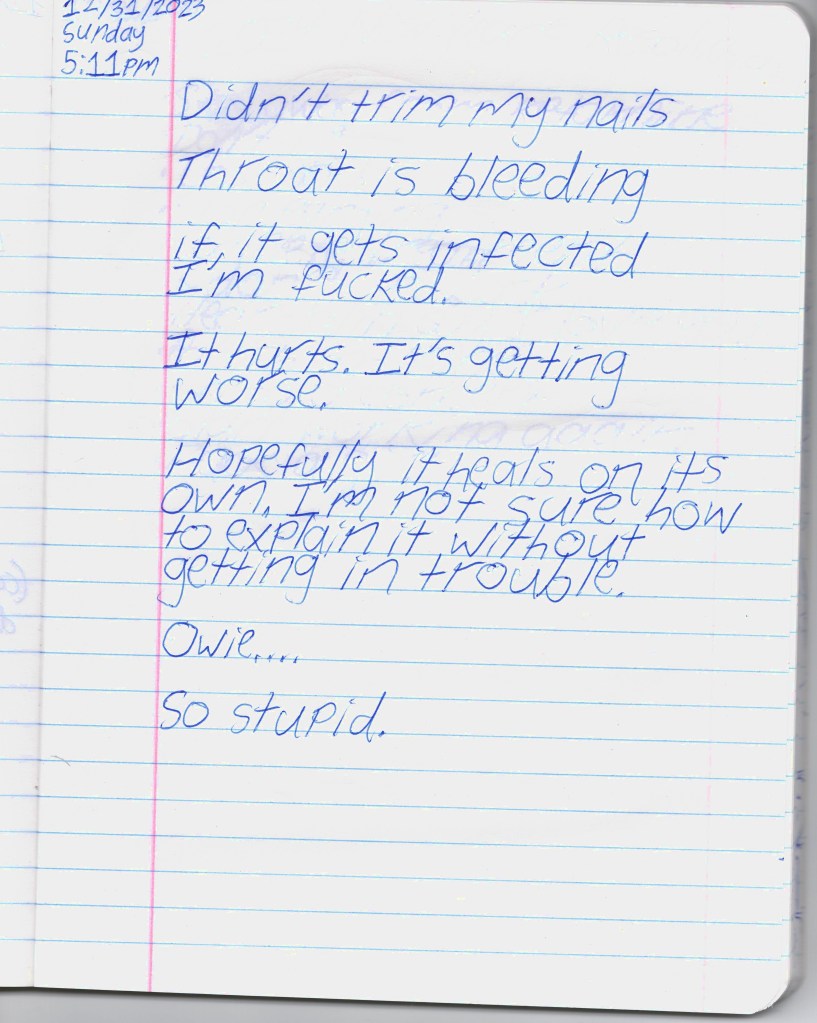 12/31/2023
Sunday
5:11pm
Didn't trim my nails
Throat is bleeding
if, it gets infected
I'm fucked.
It hurts. It's getting
worse.
Hopefully it heals on its
own. I'm not sure how
to explain it without
getting in trouble.
Owie....
So stupid.